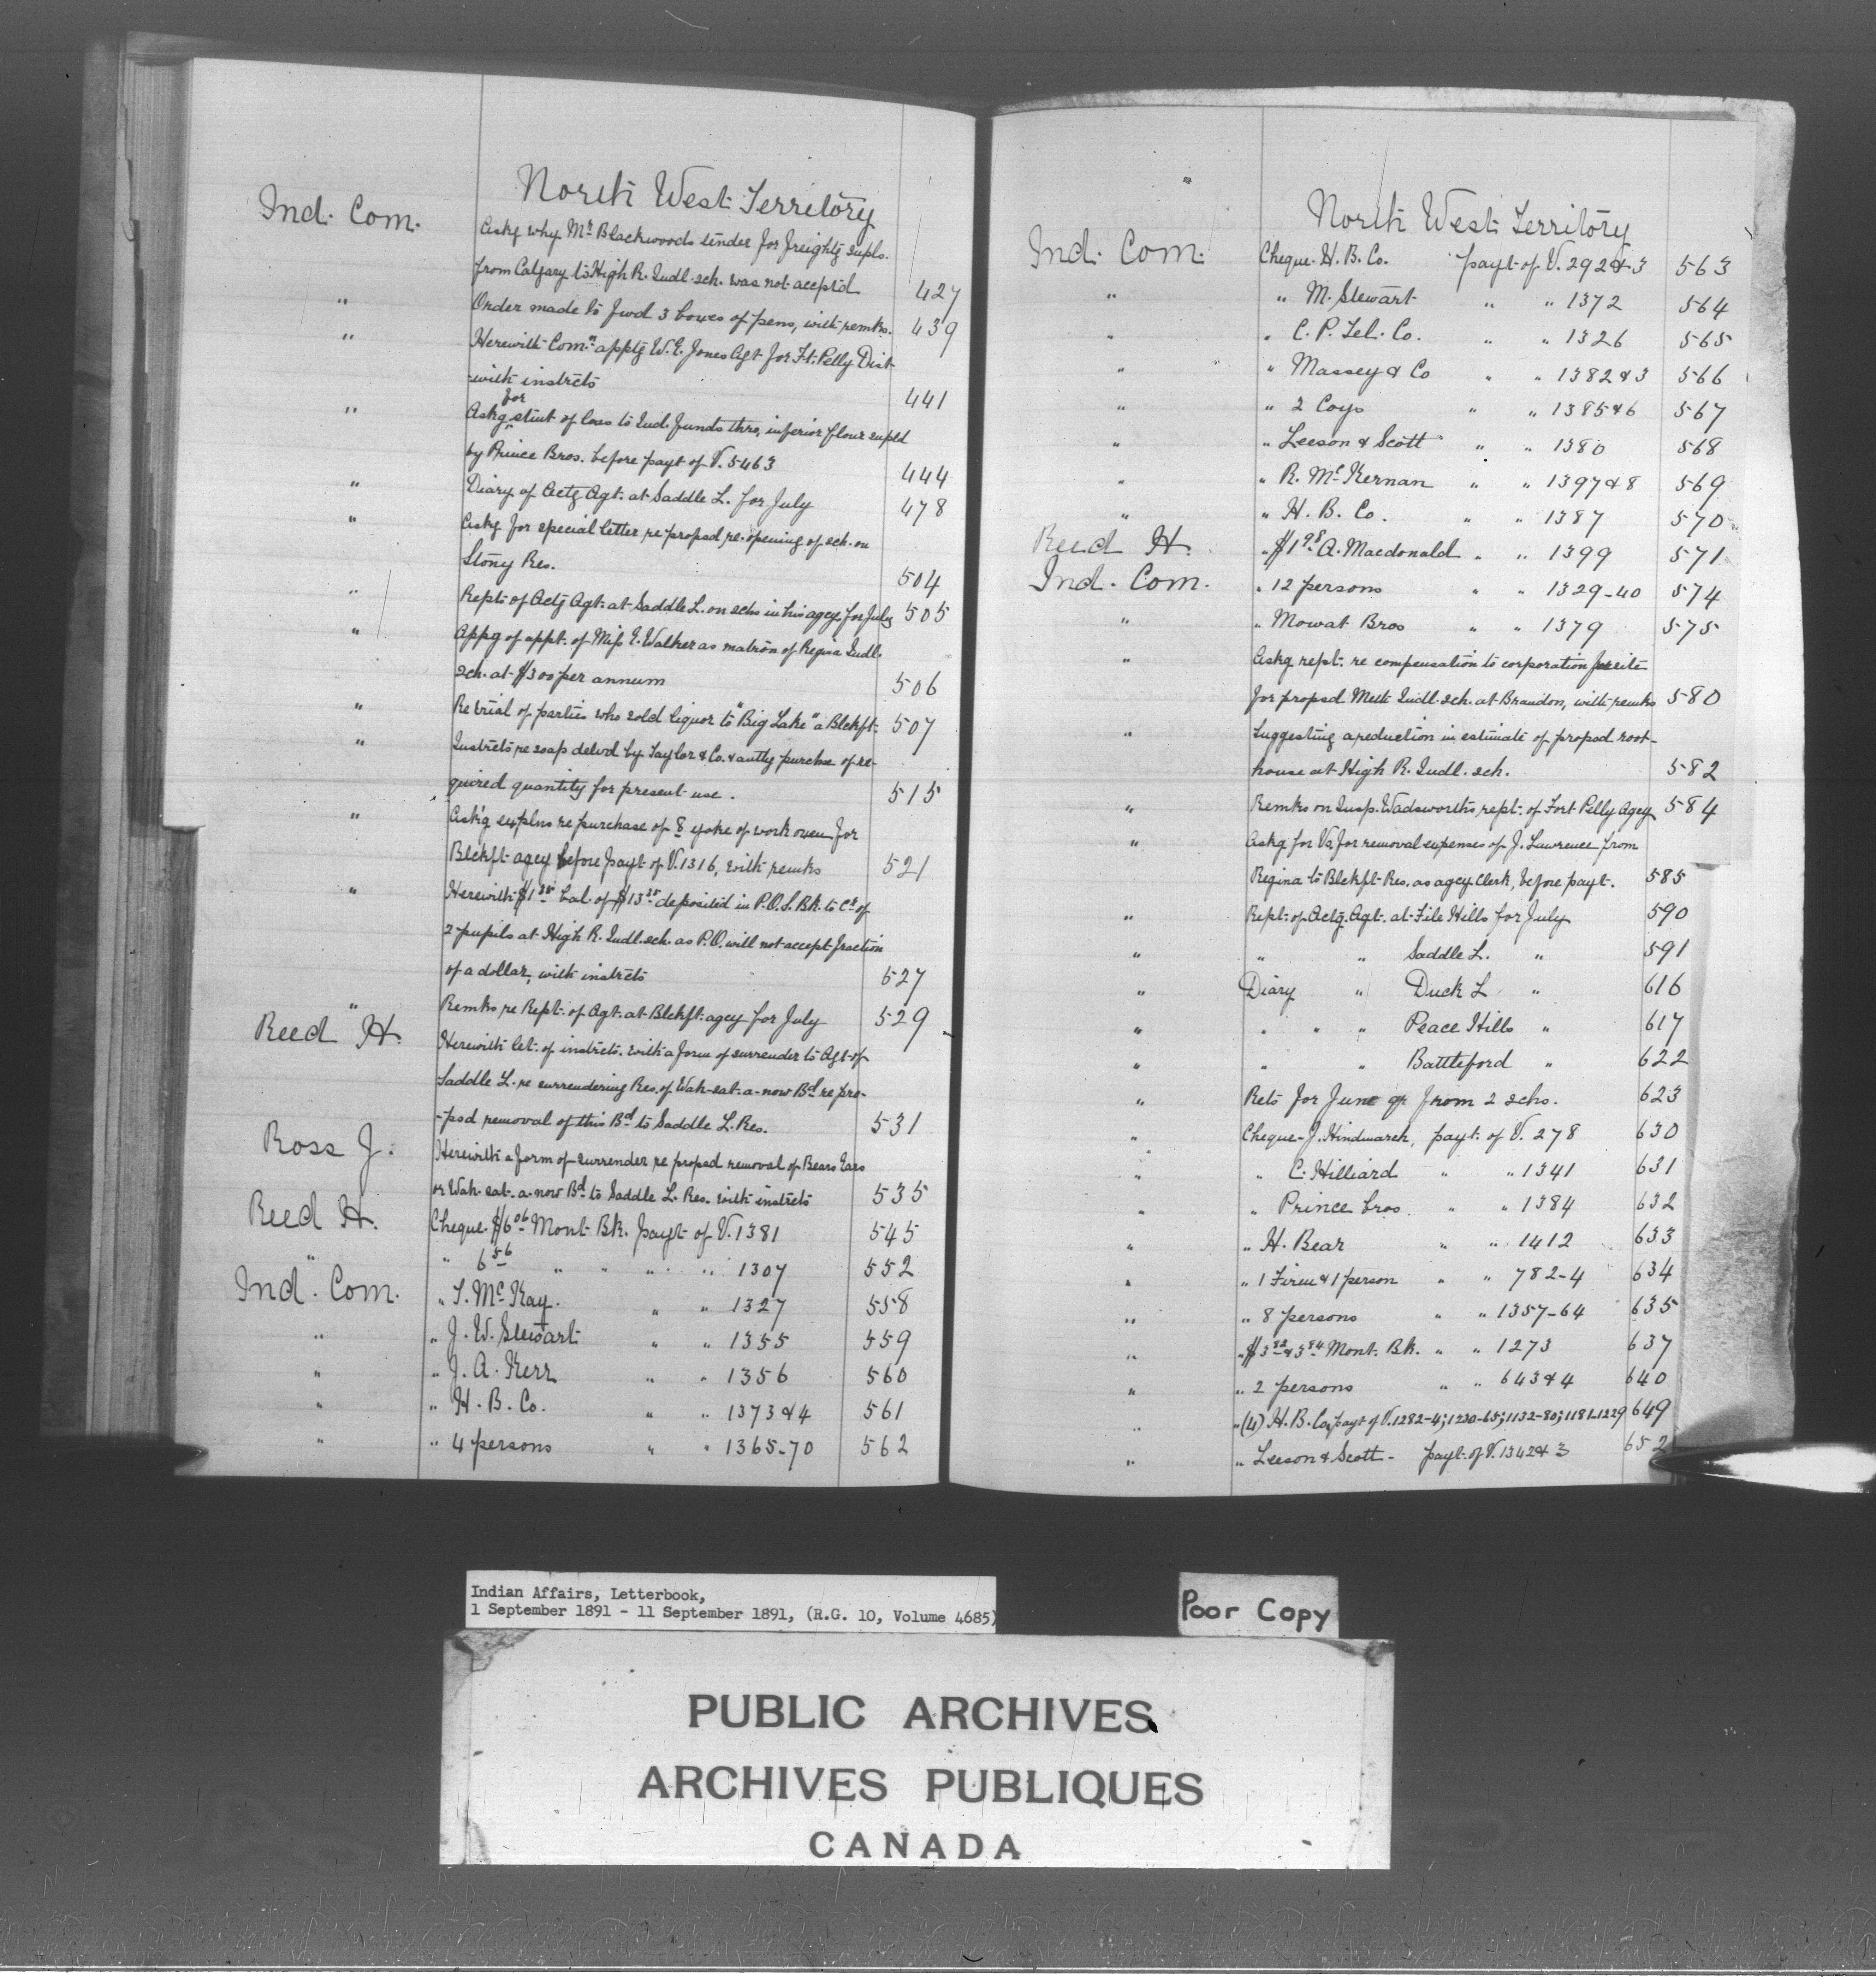 North West Territory
Ind. Com. Askg why Mr Blackwoods tender for freightg supls.
from Calgary to High R. Indl. sch. was not accep'd 427
" Order made to fwd 3 boxes of pens, with remks. 439
" Herewith Comn apptg W. E. Jones Agt for Ft. Pelly Dist
-with instrcts 441
for
" Askg stmt of loss to Ind. funds thro, inferior flour supld
by Prince Bros. before payt of V. 5463 444
" Diary of Actg Agt. at Saddle L. for July 478
" Askg for special letter re propsd re-opening of sch. on
Stony Res. 504
" Rept. of Actg Agt. at Saddle L. on schs in his agey for July 505
" Appg of appt. of Miss E. Walker as matron of Regina Indl.
sch. at $300 per annum 506
" Re trial of parties who sold liquor to "Big Lake" a Blckft. 507
" Instrcts re soap delvd by Taylor & Co. & authg purchse of re-
quired quantity for present use. 515
" Ask'g explns re purchase of 8 yoke of work oxen for
Blckft agey before payt of V. 1316, with remks 521
" Herewith $1 35 bal. of $13 35 deposited in P.O.S. Bk. to Cr of
2 pupils at High R. Indl. sch. as P.O. will not accept fraction
of a dollar, with instrcts 527
" Remks re Rept. of Agt. at Blckft. agey for July 529
Reed H. Herewith let. of instrcts. with a form of surrender to Agt. of
Saddle L. re surrendering Res. of Wah-sat-a-now Bd re pro-
-psd removal of this Bd to Saddle L. Res. 531
Ross J. Herewith a form of surrender re propsd removal of Bears Ears
or Wah-sat-a-now Bd to Saddle L. Res. with instrcts 535
Reed H. Cheque $6 06 Mont Bk. payt of V. 1381 545
" " 6 56 " " " " 1307 552
Ind. Com. " T. McKay. " " 1327 558
" " J. W. Stewart " " 1355 559
" " J. A. Kerr " " 1356 560
" " H. B. Co. " " 1373 & 4 561
" " 4 persons " " 1365-70 562
North West Territory
Ind. Com. Cheque H. B. Co. payt of V. 292 & 3 563
" " M. Stewart " " 1372 564
" " C. P. Tel. Co. " " 1326 565
" " Massey & Co " " 1382 & 3 566
" " 2 Coys " " 1385 & 6 567
" " Leeson & Scott " " 1380 568
" " R. McKernan " " 1397 & 8 569
" " H. B. Co. " " 1387 570
Reed H. " $1 98 A. Macdonald " " 1399 571
Ind. Com. " 12 persons " " 1329-40 574
" " Mowat Bros " " 1379 575
" Askg rept. re compensation to corporation for site
for propsd Meth Indl. sch. at Brandon, with remks 580
" Suggesting a reduction in estimate of propsd root-
house at High R. Indl. sch. 582
" Remks on Insp. Wadsworth's rept. of Fort Pelly Agey 584
" Askg for Vs. for removal expenses of J. Lawrence from
Regina to Blckft Res. as agey clerk, before payt. 585
" Rept. of Actg. Agt. at File Hills for July 590
" " " Saddle L. " 591
" Diary " Duck L " 616
" " " " Peace Hills " 617
" " " Battleford " 622
" Rets for June qr from 2 schs. 623
" Cheque J. Hindmarch, payt. of V. 278 630
" " C. Hilliard " " 1341 631
" " Prince bros. " " 1384 632
" " H. Bear " " 1412 633
" " 1 Firm & 1 person " " 782-4 634
" " 8 persons " " 1357-64 635
" " $3 82 & 3 84 Mont. Bk. " " 1273 637
" " 2 persons " " 643 & 4 640
" " (4) H. B. Co, payt of V. 1282-4; 1230-65; 1132-80; 1181-1229 649
" " Leeson & Scott - payt. of V. 1342 & 3 652
Indian Affairs, Letterbook,
1 September 1891 - 11 September 1891, (R.G. 10, Volume 4685)
Poor Copy
PUBLIC ARCHIVES
ARCHIVES PUBLIQUES
CANADA